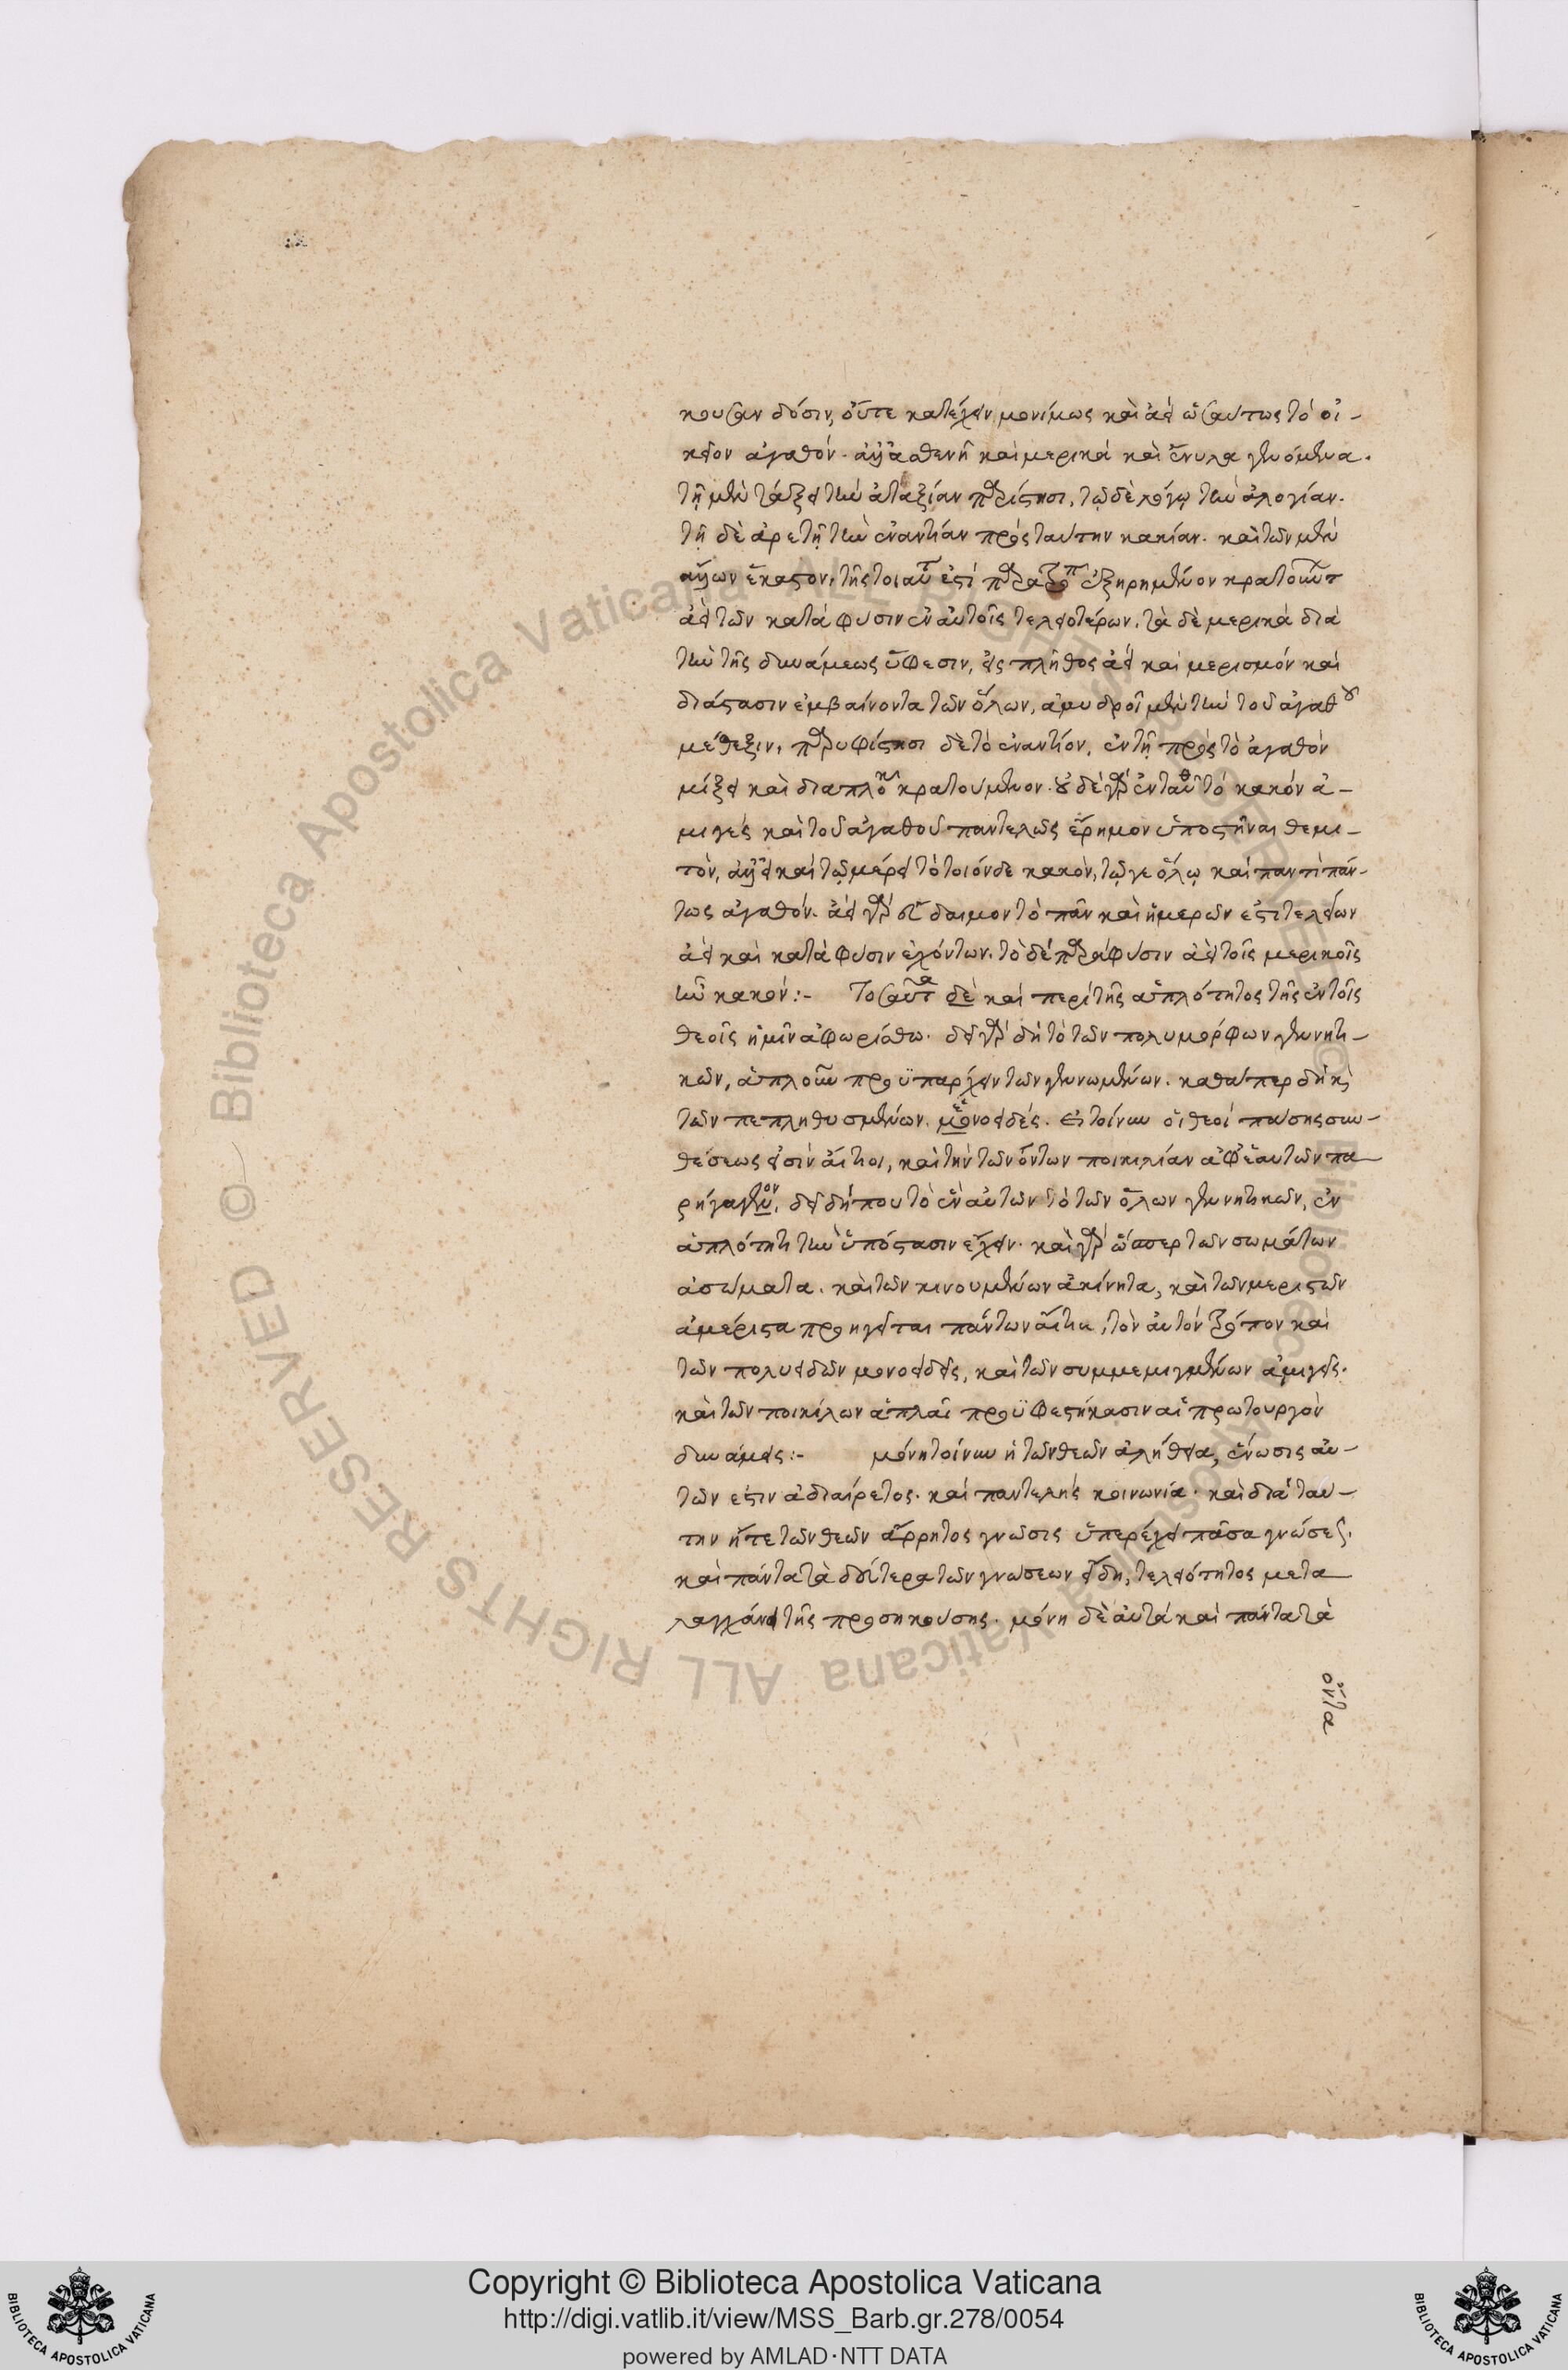 κουσαν δόσιν, οὔτε κατέχειν μονίμως καὶ ἀεὶ ὡσαύτως τὸ οἰ-
κεῖον ἀγαθόν. ἀλλ' ἀσθενῆ καὶ μερικὰ καὶ ἔνυλα γενόμενα.
τῇ μὲν τάξει τὴν ἀταξίαν παρίστησι, τῷ δὲ λόγῳ τὴν ἀλογίαν.
τῇ δὲ ἀρετῇ τὴν ἐναντίαν πρὸς ταύτην κακίαν. καὶ τῶν μὲν
ὅλων ἕκαστον, τῆς τοιαύτ ἐστὶ παρατροπ ἐξηρημένον κρατούντ
ἀεὶ τῶν κατὰ φύσιν ἐν αὐτοῖς τελειοτέρων. τὰ δὲ μερικὰ διὰ
τὴν τῆς δυνάμεως ὕφεσιν, εἰς πλῆθος ἀεὶ καὶ μερισμὸν καὶ
διάστασιν ἐμβαίνοντα τῶν ὅλων, ἀμυδροῖ μὲν τὴν τοῦ ἀγαθοῦ
μέθεξιν, παρυφίστησι δὲ τὸ ἐναντίον, ἐν τῇ πρὸς τὸ ἀγαθὸν
μίξει καὶ διαπλοκῇ κρατούμενον. οὐδὲ γὰρ ἐνταῦθ τὸ κακὸν ἀ-
μιγὲς καὶ τοῦ ἀγαθοῦ παντελῶς ἔρημον ὑποστῆναι θεμι-
τὸν, ἀλλ' εἰ καὶ τῷ μέρει τὸ τοιόνδε κακὸν, τῷ γε ὅλῳ καὶ παντὶ πάν-
τως ἀγαθόν. ἀεὶ γὰρ εὔδαιμον τὸ πᾶν καὶ ἡμερῶν ἐστὶ τελείων
ἀεὶ καὶ κατὰ φύσιν ἐχόντων. τὸ δὲ παρὰ φύσιν ἀεὶ τοῖς μερικοῖς
ἦν κακόν:- Τοσαῦτα δὲ καὶ περὶ τῆς ἁπλότητος τῆς ἐν τοῖς
θεοῖς ἡμῖν ἀφωρίσθω. δεῖ γὰρ δὴ τὸ τῶν πολυμόρφων γεννητι-
κῶν, ἁπλοῦν προϋπάρχειν τῶν γεννωμένων. καθάπερ δὴ κὶ
τῶν πεπληθυσμένων. μονοειδές. εἰ τοίνυν οἱ θεοὶ πάσης συν-
θέσεως εἰσὶν αἴτιοι, καὶ τὴν τῶν ὄντων ποικιλίαν ἀφ' ἑαυτῶν πα-
ρήγαγον, δεῖ δήπου τὸ ἓν αὐτῶν τὸ τῶν ὅλων γεννητικῶν, ἐν
ἁπλότητι τὴν ὑπόστασιν ἔχειν. καὶ γὰρ ὥσπερ τῶν σωμάτων
ἀσώματα. καὶ τῶν κινουμένων ἀκίνητα, καὶ τῶν μεριστῶν
ἀμέριστα προηγεῖται πάντων αἴτια, τὸν αὐτὸν τρόπον καὶ
τῶν πολυειδῶν μονοειδεῖς, καὶ τῶν συμμεμιγμένων ἀμιγεῖς.
καὶ τῶν ποικίλων ἁπλαῖ προϋφεστήκασιν αἱ πρωτουργὸν
δυνάμεις:- μόνη τοίνυν ἡ τῶν θεῶν ἀλήθεια, ἕνωσις αὐ-
τῶν ἐστιν ἀδιαίρετος. καὶ παντελὴς κοινωνία. καὶ διὰ ταύ-
την ἥτε τῶν θεῶν ἄρρητος γνῶσις ὑπερέχει πᾶσα γνώσεις.
καὶ πάντα τὰ δεύτερα τῶν γνώσεων εἴδη, τελειότητος μετα
λαγχάνει τῆς προσηκούσης. μόνη δὲ αὐτὰ καὶ πάντα τὰ
ὄντα
Copyright © Biblioteca Apostolica Vaticana
http://digi.vatlib.it/view/MSS_Barb.gr.278/0054
powered by AMLAD·NTT DATA